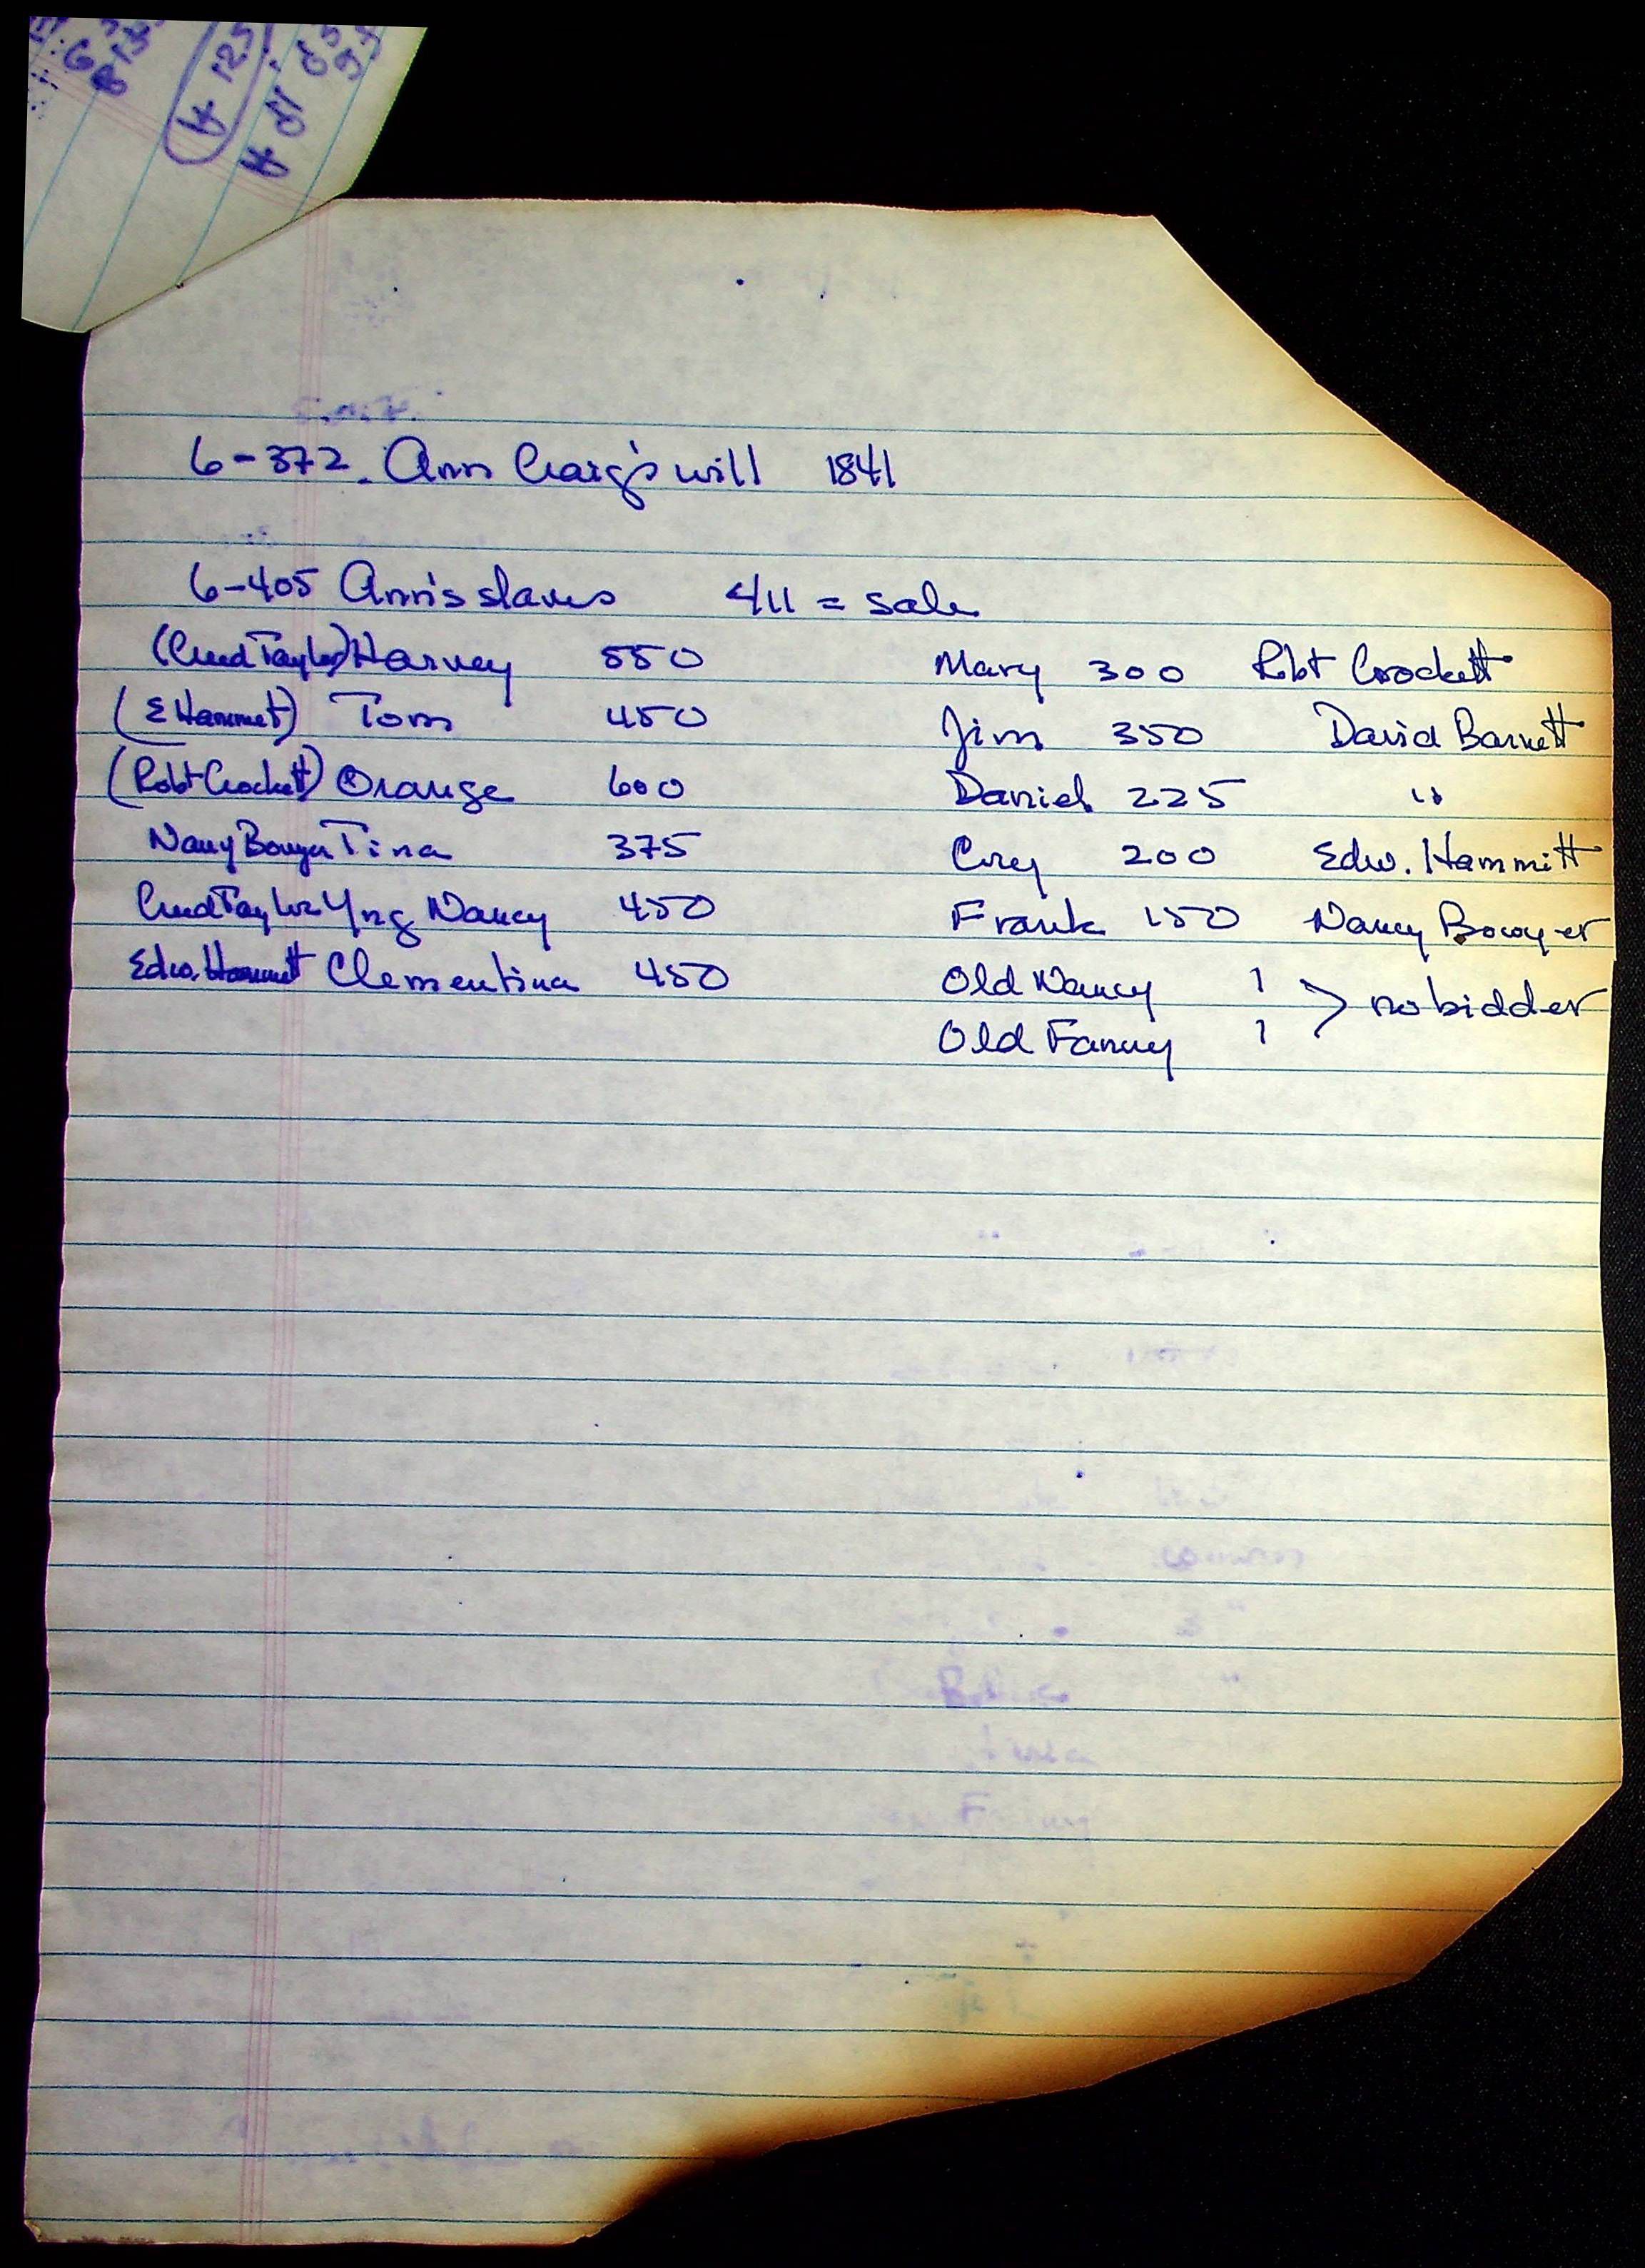 6-372. Ann Craig's will 1841
6-405 Ann's slaves 4/11 = sale
(Creed Taylor) Harvey 550 Mary 300 Robt Crockett
(E Hammet) Tom 450 Jim 350 David Barnett
(Robt Crockett) Orange 600 Daniel 225 "
Nancy Bowyer Tina 375 200 Edw. Hammitt
Creed Taylor Yng Nancy 450 Frank 150 Nancy Bowyer
Edw. Hammett Clementina 450 Old Nancy 1 > no bidder
Old Fanny 1